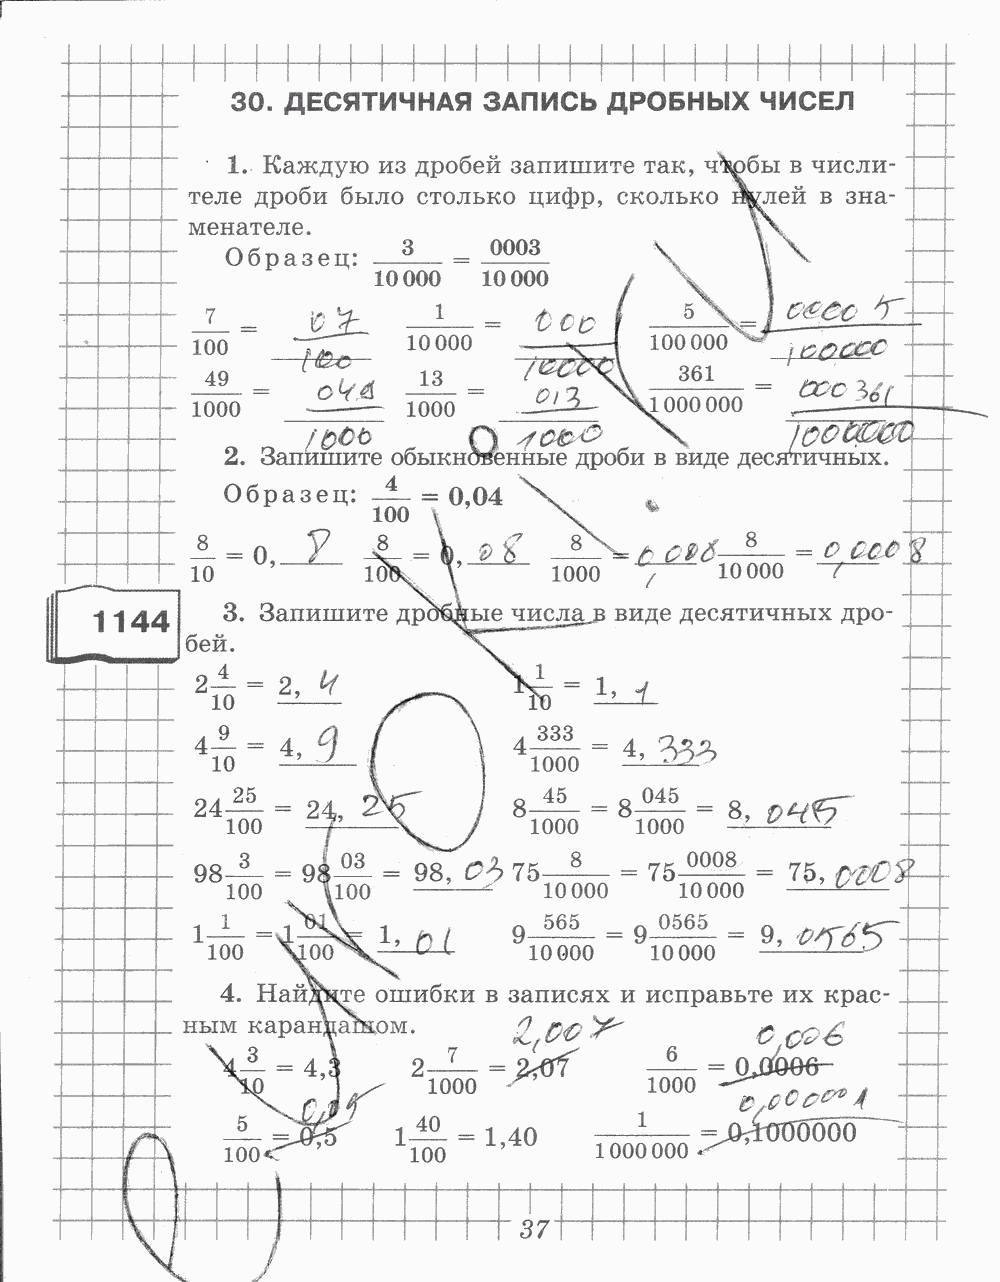 30. ДЕСЯТИЧНАЯ ЗАПИСЬ ДРОБНЫХ ЧИСЕЛ
1. Каждую из дробей запишите так, чтобы в числи-
теле дроби было столько цифр, сколько нулей в зна-
менателе.
Образец: 3/10 000 = 0003/10 000
7/100 = 07/100 1/10 000 = 000/10000 5/100 000 = 00005/100000
49/1000 = 049/1000 13/1000 = 013/1000 361/1 000 000 = 000361/1000000
2. Запишите обыкновенные дроби в виде десятичных.
Образец: 4/100 = 0,04
8/10 = 0, 8 8/100 = 0, 08 8/1000 = 0,008 8/10 000 = 0,0008
1144
3. Запишите дробные числа в виде десятичных дро-
бей.
2 4/10 = 2, 4 1 1/10 = 1, 1
4 9/10 = 4, 9 4 333/1000 = 4, 333
24 25/100 = 24, 25 8 45/1000 = 8 045/1000 = 8, 045
98 3/100 = 98 03/100 = 98, 03 75 8/10 000 = 75 0008/10 000 = 75, 0008
1 1/100 = 1 01/100 = 1, 01 9 565/10 000 = 9 0565/10 000 = 9, 0565
4. Найдите ошибки в записях и исправьте их крас-
ным карандашом.
2,007 0,006
4 3/10 = 4,3 2 7/1000 = 2,07 6/1000 = 0,0006
0,05 0,000001
5/100 = 0,5 1 40/100 = 1,40 1/1 000 000 = 0,1000000
37